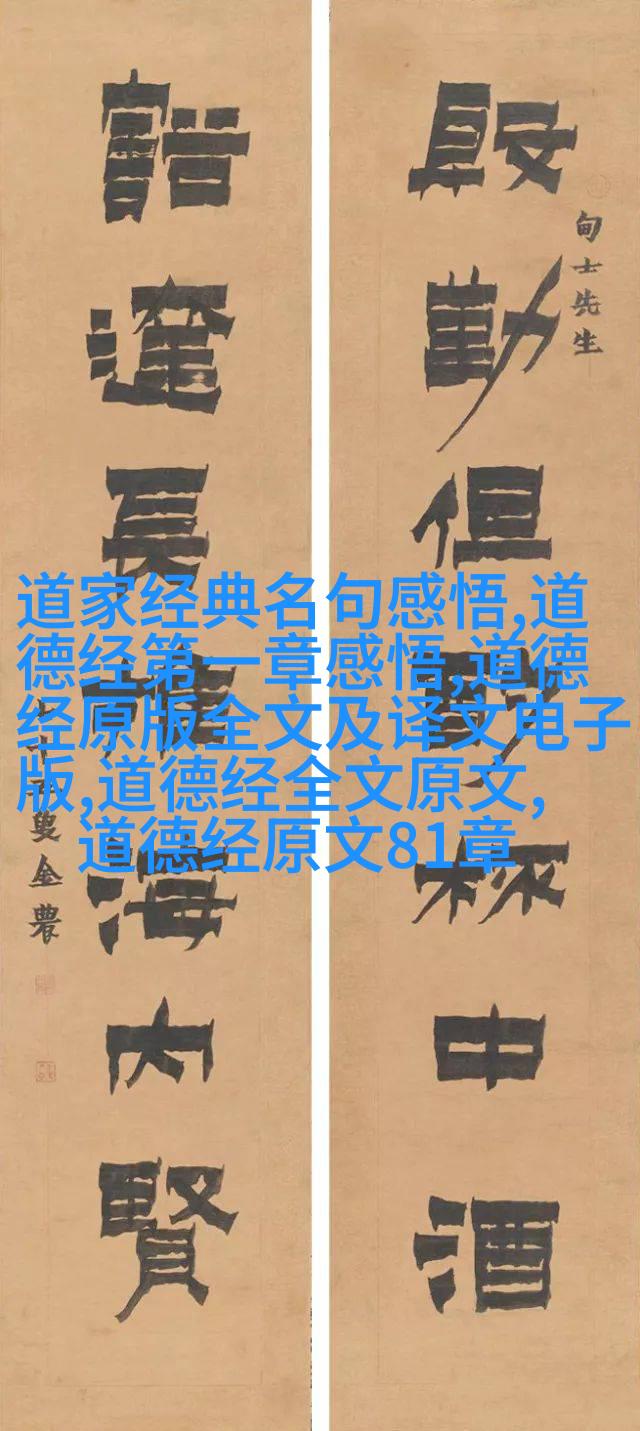 殷勤但酌杯中酒
甸士先生
豁達長推海内賢
七十五叟金農
道家经典名句感悟,道
德经第一章感悟,道德
经原版全文及译文电子
版,道德经全文原文,
道德经原文81章